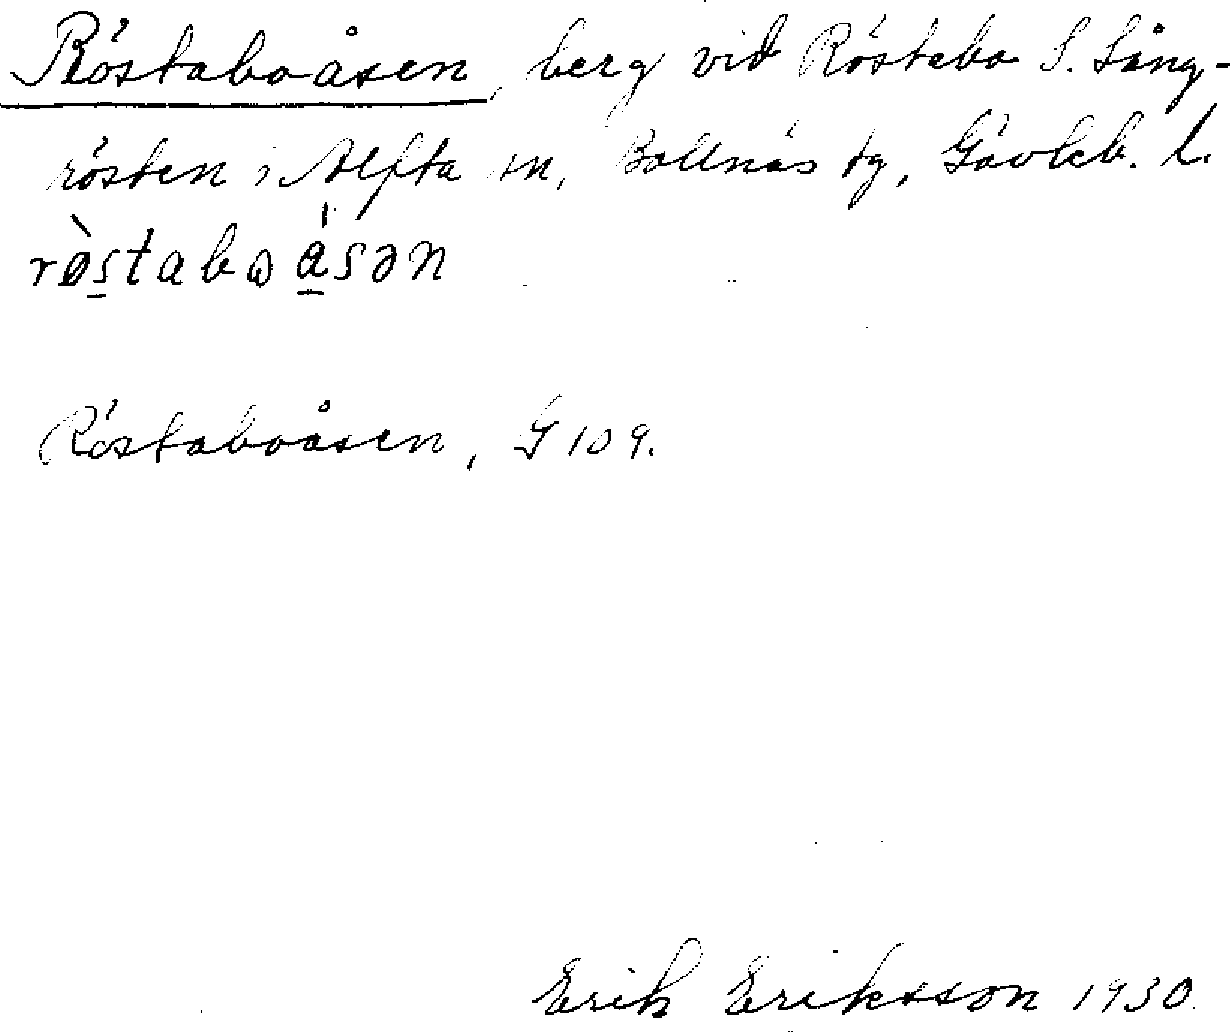 Röstaboåsen, berg vid Röstebo S. Lång-
rösten i Alfta sn, Bollnäs tg, Gävleb. l.
rø̀s̱taboá̱sən
Röstaboåsen, G 109.
Erik Eriksson 1930.